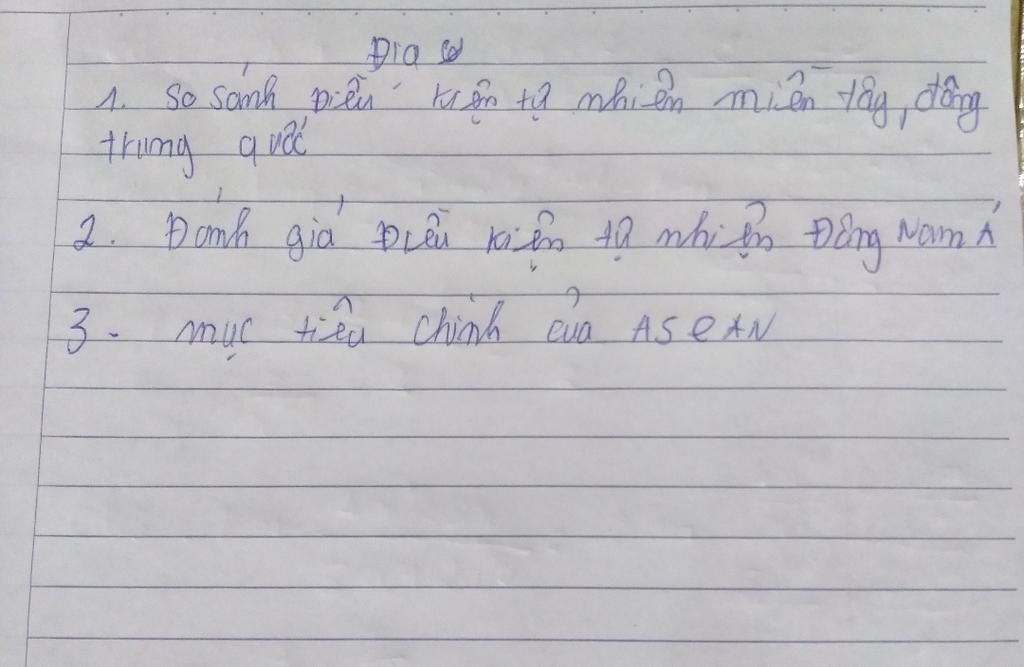 Địa
1. So sánh Điều kiện tự nhiên miền tây, đông
trung quốc
2. Đánh giá Điều kiện tự nhiên Đông Nam Á
3. mục tiêu chính của ASeAN